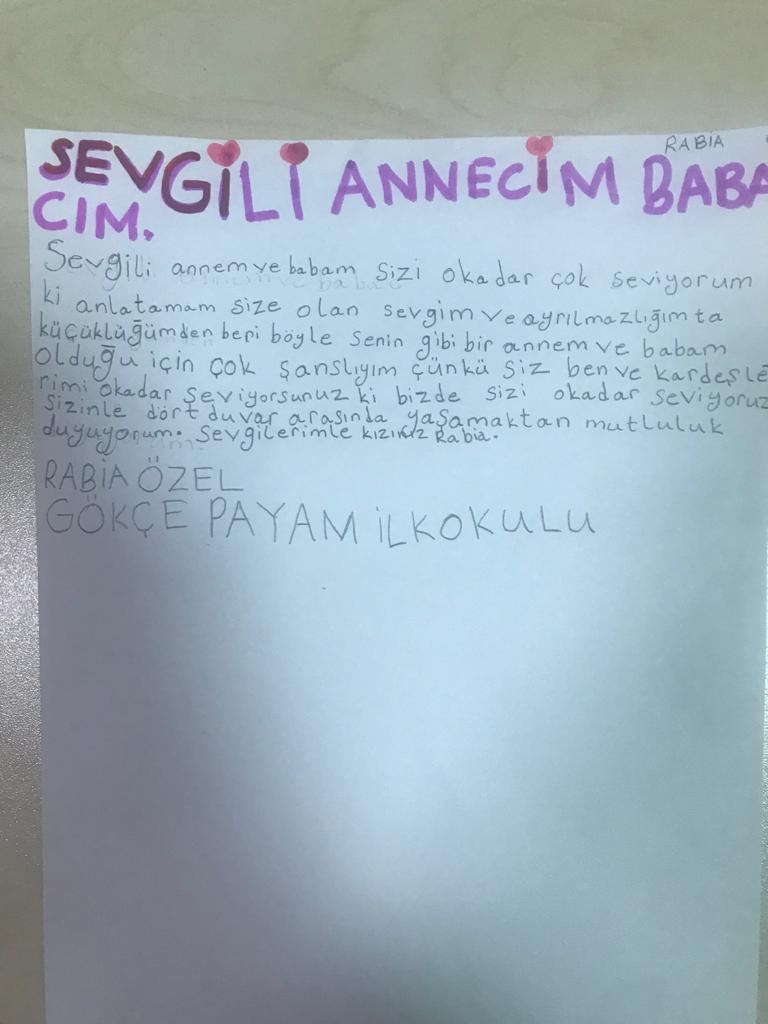 RABIA
SEVGİLİ ANNECİM BABA
CIM.
Sevgili annem ve babam sizi okadar çok seviyorum
ki anlatamam size olan sevgim ve ayrılmazlığım ta
küçüklüğümden beri böyle senin gibi bir annem ve babam
olduğu için çok şanslıyım çünkü siz ben ve kardeşle
rimi okadar seviyorsunuz ki bizde sizi okadar seviyoruz
sizinle dört duvar arasında yaşamaktan mutluluk
duyuyorum. Sevgilerimle kızınız Rabia.
RABİA ÖZEL
GÖKÇE PAYAM İLKOKULU